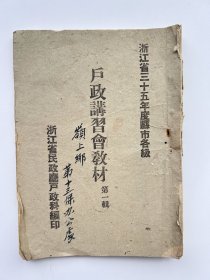 浙江省三十五年度縣市各級
戶政講習會教材 第一輯
嶺上鄉
第十三保办公處
浙江省民政廳戶政科編印